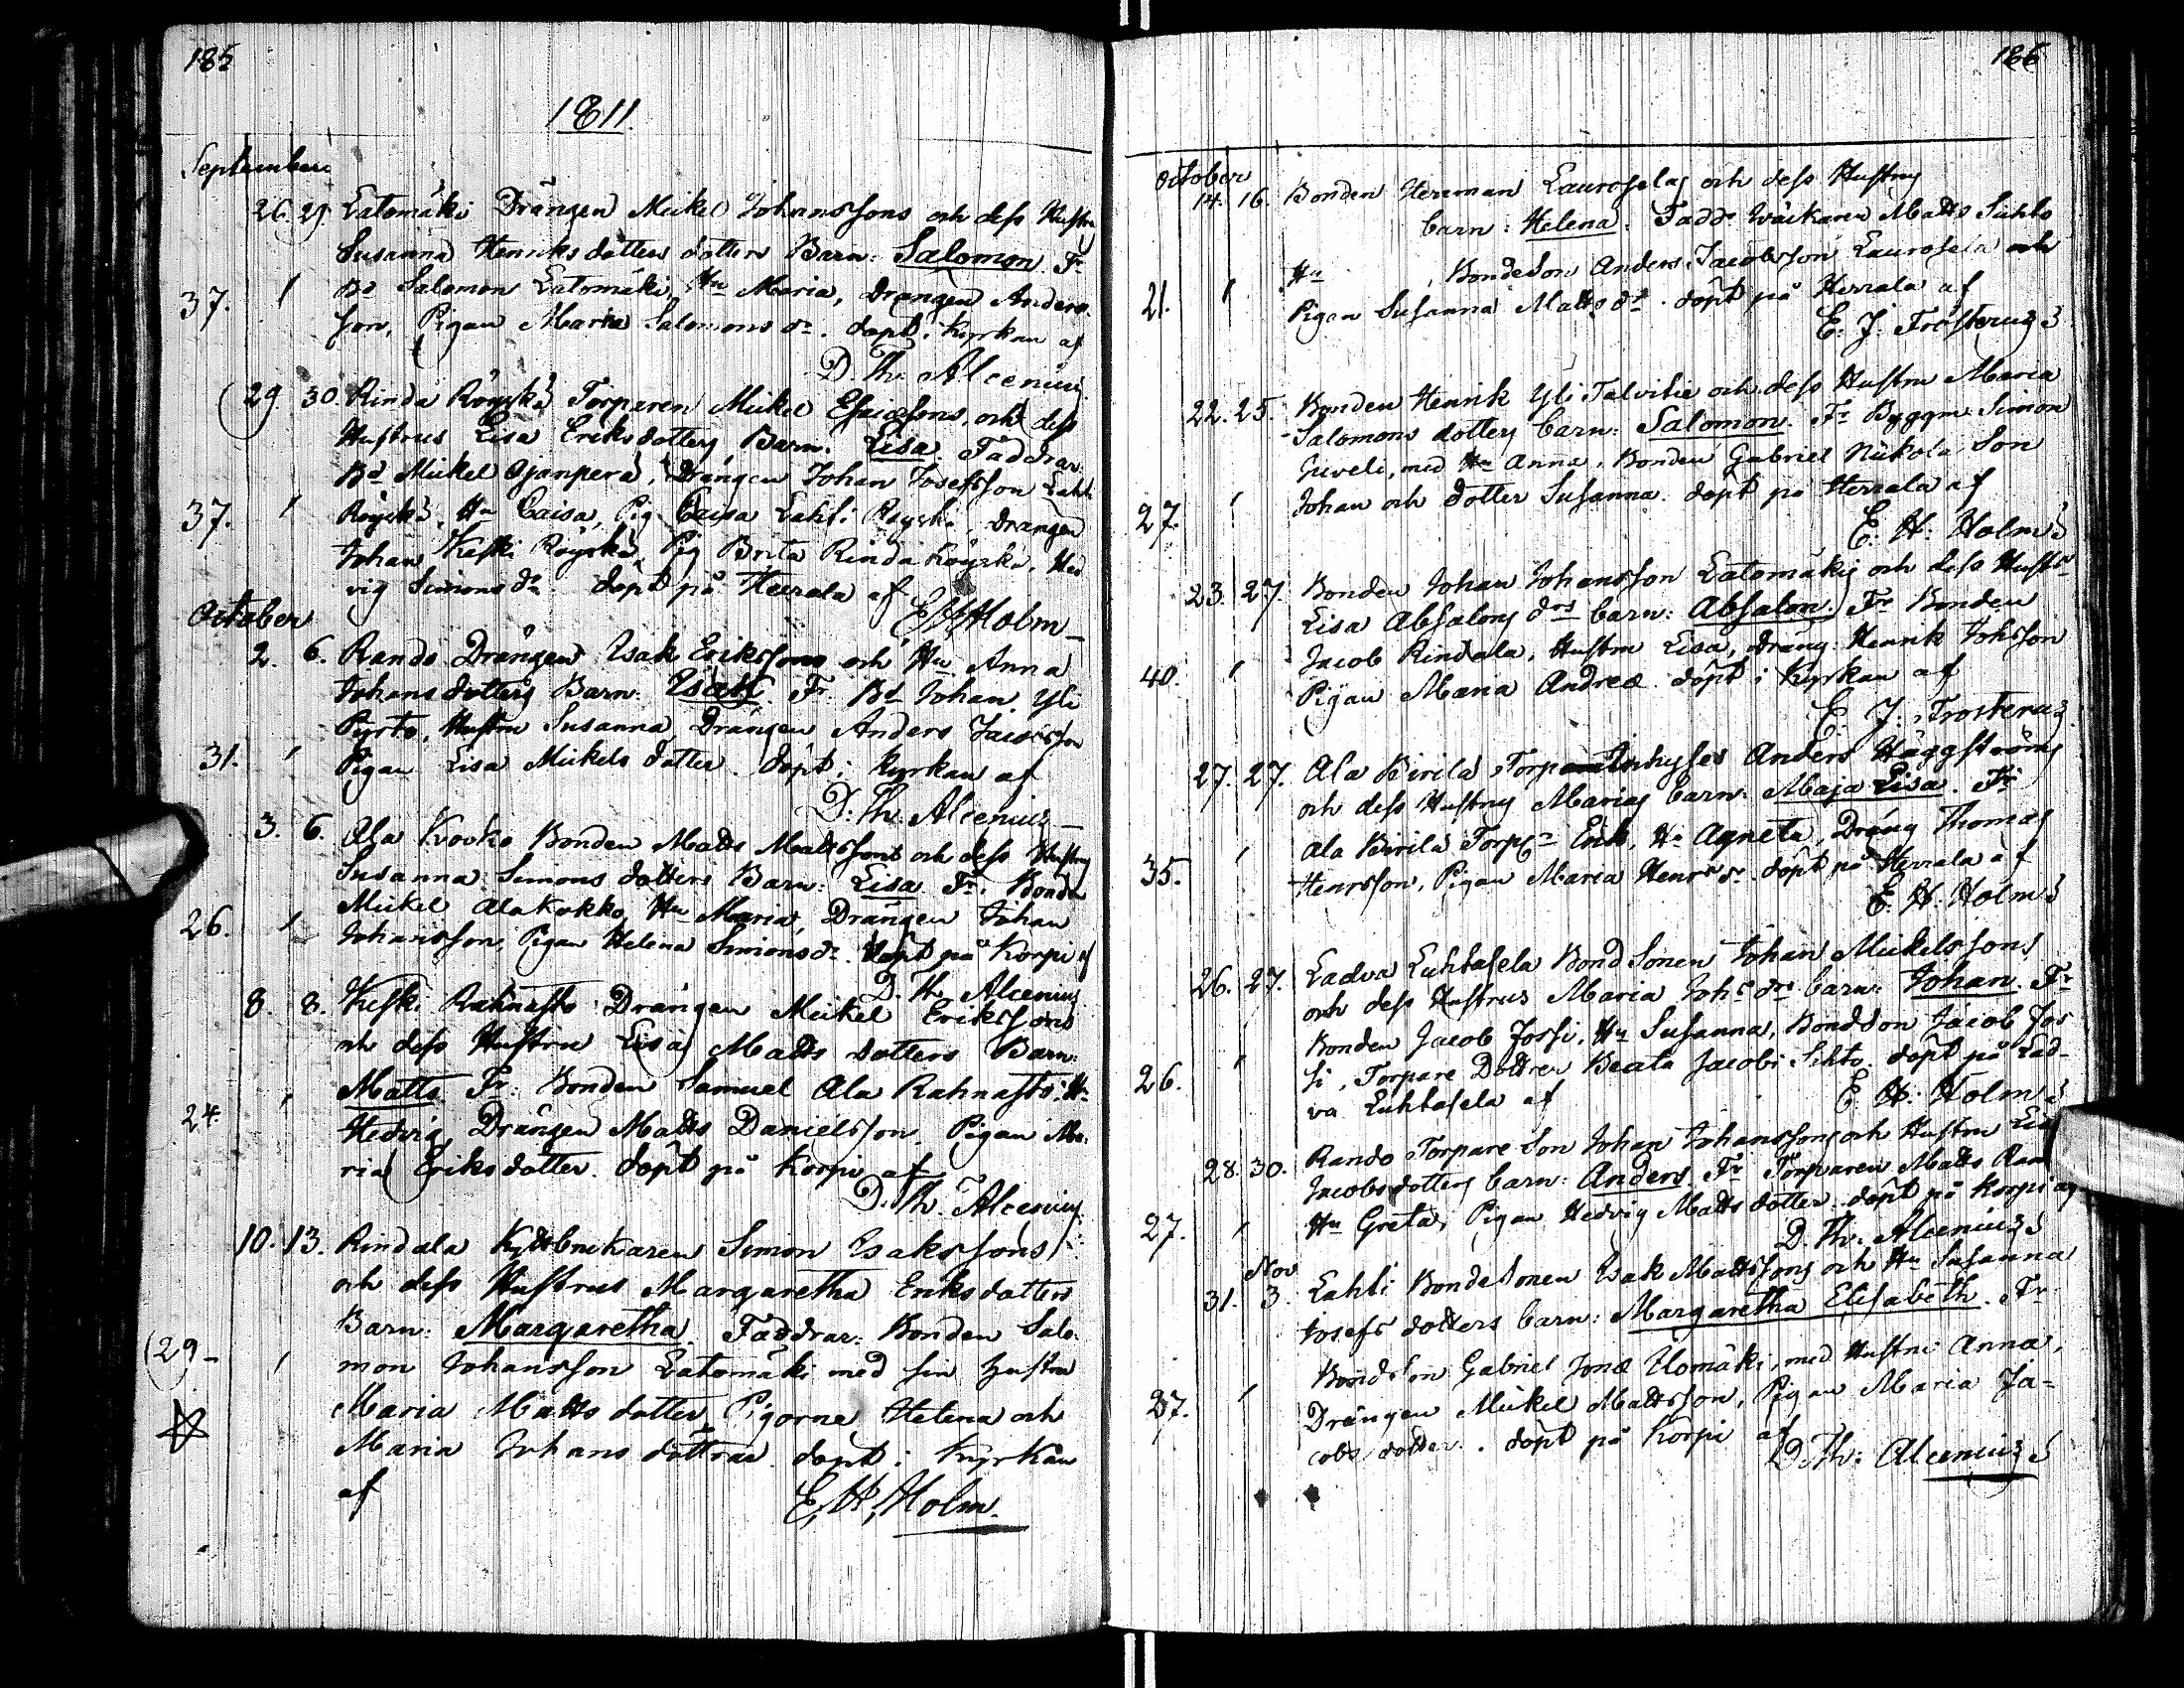 185
1811.
September
26. 29. Latomäki Drängen Mickel Johanssons och dess Hustru
Susanna Henriks dotters Barn: Salomon. Fr
37. Bd Salomon Latomäki, Hu Maria, Drängen Anders
son, Pigan Maria Salomons dr. döpt i Kyrkan af
D. Th. Alcenius
29. 30. Rinda Röyskö Torparen Mickel Esaiæsons, och dess
Hustrus Lisa Eriksdotters Barn. Lisa. Faddrar
Bd Mickel Ojanperä, Drängen Johan Josefsson Lahti
37. Röyskö, Hu Caisa, Pig Caisa Lahti Röyskö, Drängen
Johan Keski Röyskö, Pig Brita Rinda Röyskö, Hed
vig Simons dr. döpt på Herrala af
E. H. Holm
October
2. 6. Rando Drängen Isak Erikssons och Hu Anna
Johans dotters Barn. Isak. Fr. Bd Johan Yli
Pyrto, Hustru Susanna, Drängen Anders Jacobsson
31. Pigan Lisa Mickels dotter. döpt i Kyrkan af
D. Th. Alcenius
3. 6. Ala Kocko Bonden Matts Mattssons och dess Hustru
Susanna Simons dotters Barn: Lisa. Fr. Bonden
26. Mickel Alakokko, Hu Maria, Drängen Johan
Johansson, Pigan Helena Simons dr. döpt på Korpi af
D. Th. Alcenius
8. 8. Keski Rahnasto Drängen Mickel Erikssons
och dess Hustru Lisa Matts dotters Barn:
Matts. Fr: Bonden Samuel Ala Rahnasto, Hu
24. Hedvig, Drängen Matts Danielsson, Pigan Ma-
ria Eriksdotter. döpt på Korpi af
D. Th. Alcenius
10. 13. Rindala Simon Isakssons
och dess Hustrus Margaretha Eriksdotters
Barn: Margaretha. Faddrar: Bonden Salo-
29 mon Johansson Latomäki med sin hustru
Maria Matts dotter, Pigorne Helena och
Maria Johans döttrar. döpt i Kyrkan
af E. H. Holm.
186
October
14. 16. Bonden Herman Lauroselas och dess Hustrus
barn: Helena. Fadd: Matts Sihto
Hu , Bondeson Anders Jacobsson Laurosela och
21. Pigan Susanna Matts dr. döpt på Herrala af
E. J. Frosterus
22. 25. Bonden Henrik Yli Talvitie och dess Hustru Maria
Salomons dotters barn: Salomon. Fr Byggm. Simon
Juveli, med Hu Anna, Bonden Gabriel Nikola, Son
27. Johan och dotter Susanna. döpt på Herrala af
E. H. Holm
23. 27. Bonden Johan Johansson Latomäkis och dess Hustr
Lisa Absalons drs barn: Absalon. Fr Bonden
40. Jacob Rindala, Hustru Lisa, dräng Henrik Johsson
Pigan Maria Andreæ. döpt i Kyrkan af
E. J. Frosterus
27. 27. Ala Birila Inhyses Anders Häggströms
och dess Hustrus Marias barn: Maja Lisa. Fr
Ala Birila Erik, Hu Agneta, Dräng Thomas
35. Henrsson, Pigan Maria Henrs dr. döpt på Herrala af
E. H. Holm
26. 27. Ladva Luhtasela Bond Sonen Johan Mickelssons
och dess Hustrus Maria Johs drs barn: Johan. Fr
Bonden Jacob Jossi, Hu Susanna, Bondson Jacob Jos
26. si, Torpare Dottren Beata Jacobi Sihto. döpt på Lad-
va Luhtasela af E. H. Holm
28. 30. Rando Torpare Son Johan Johanssons och Hustru
Jacobs dotters barn: Anders. Fr Torparen Matts
27. Hu Greta, Pigan Hedvig Matts dotter. döpt på Korpi af
D. Th. Alcenius
Nov
31. 3. Lahti Bondesonen Isak Mattssons och Hu Susanna
Josefs dotters barn: Margaretha Elisabeth. Fr
Bondson Gabriel Jonæ Uomäki, med Hustru Anna,
27. Drängen Mickel Mattsson, Pigan Maria Ja-
cobs dotter. döpt på Korpi af
D. Th. Alcenius